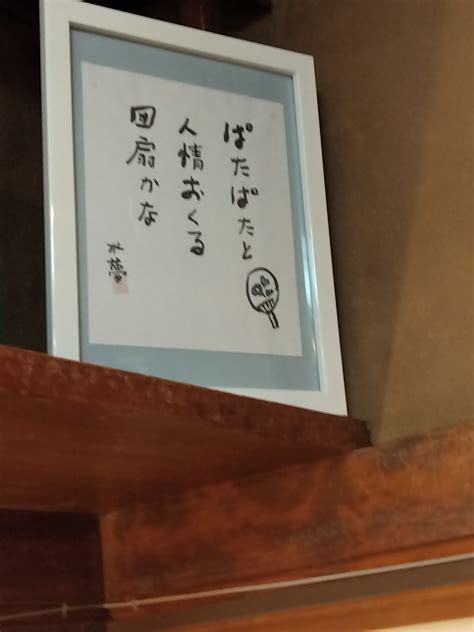 ぱたぱたと
人情おくる
団扇かな